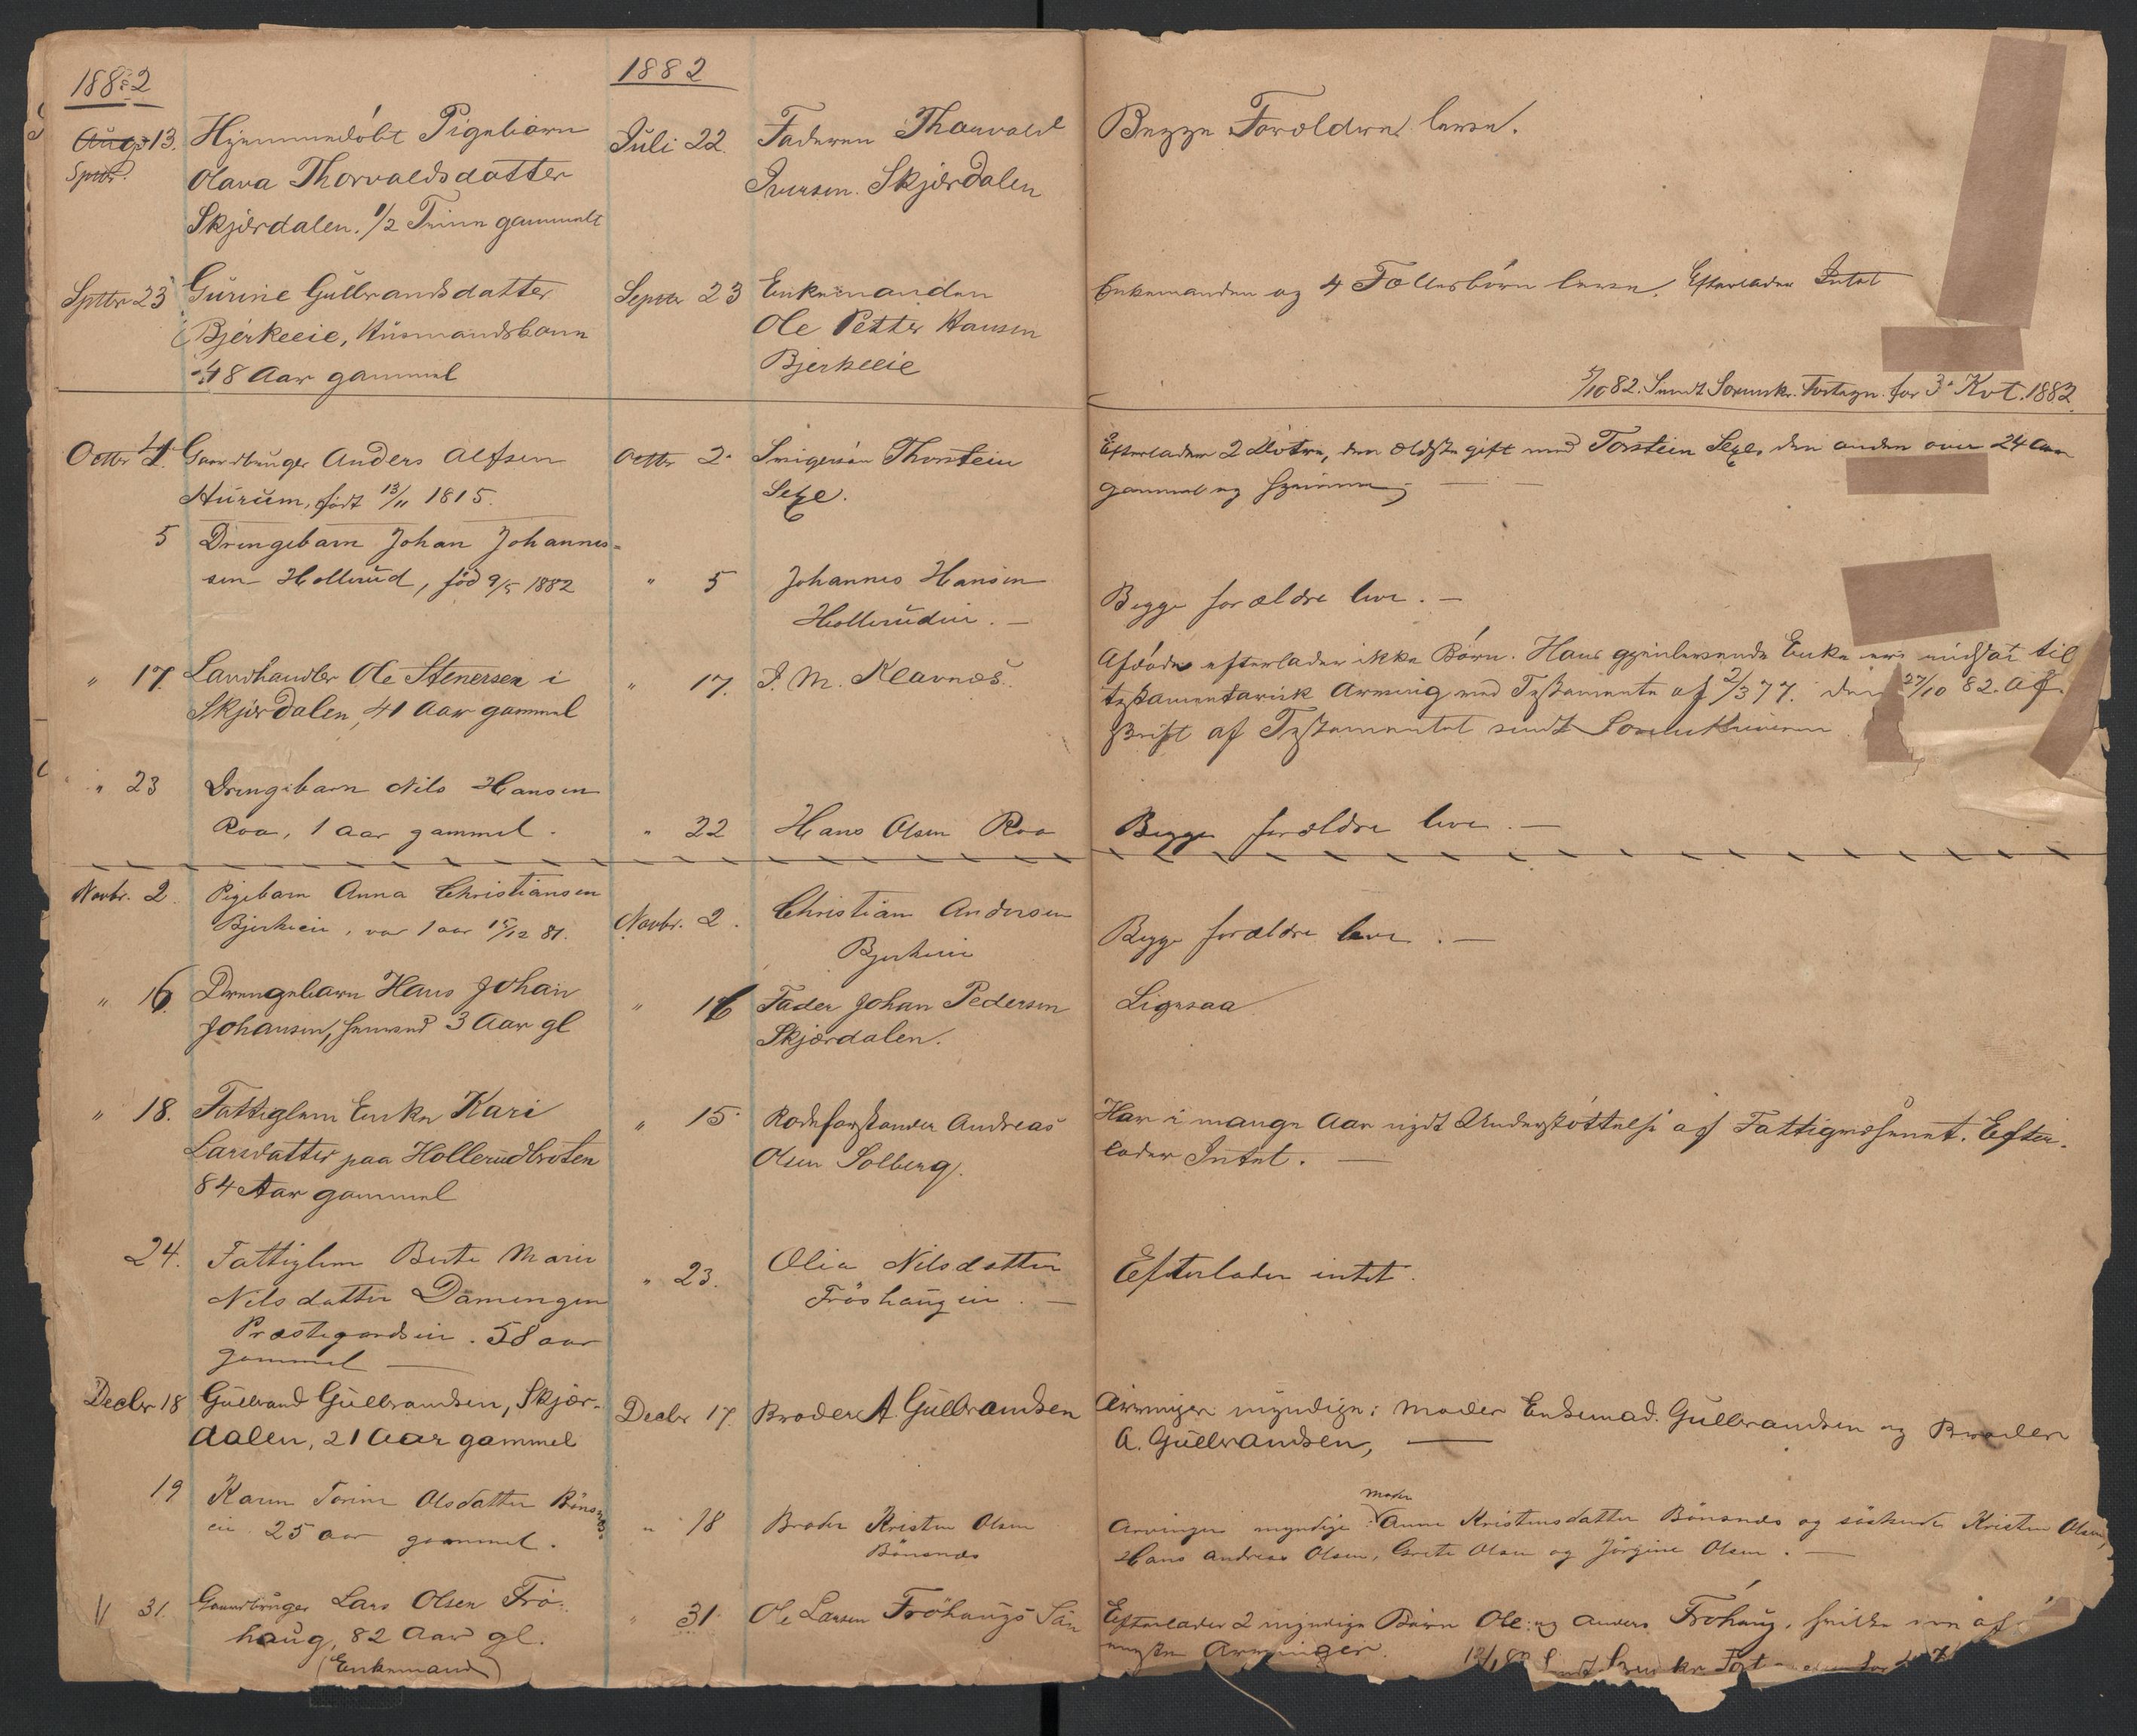 1882
1882
Augs 13. Hjemmedøbt Pigebarn Juli 22. Faderen Thorvald Begge Forældre leve.
Sptbr. Olava Thorvaldsdatter Iversen Skjærdalen
Skjærdalen. 1/2 Time gammelt
Sptbr 23 Gurine Gulbrandsdatter Septr 23 Enkemanden Enkemanden og 4 Fællesbørn leve. Efterlader Intet
Bjerkeeie, Husmandskone Ole Petter Hansen
48 Aar gammel Bjerkeeie
5/10 82. Sendt Sorenskr. Fortegn. for 3' Kvt. 1882.
Octbr 4. Gaardbruger Anders Alfsen Octbr 2. Svigersøn Thorstein Efterlader 2 Døtre, den ældste gift med Torstein Sexe, den anden over 24 Aar
Hurum, født 13/11 1815. Sexe. gammel og hjemme
5 Drengebarn Johan Johannes=
sen Hollerud, fød 9/5 1882 " 5 Johannes Hansen Begge forældre leve. —
Hollerudeie. —
" 17. Landhandler Ole Stenersen i " 17. J. M. Klavnæs. Afdøde efterlader ikke Børn. Hans gjenlevende Enke er indsat til
Skjærdalen, 41 Aar gammel testamentarisk Arving med Testamente af 2/3 77. den 27/10 82. Af-
skrift af Testamentet sendt Sorenskriveren
" 23 Drengebarn Nils Hansen
Roa, 1 aar gammel. " 22 Hans Olsen Roa Begge forældre leve. —
Novbr. 2. Pigebarn Anna Christiansen Novbr. 2. Christian Andersen Begge forældre leve. —
Bjerkeeie, var 1 aar 15/12 81. Bjerkeeie
" 16. Drengebarn Hans Johan " 16 Fader Johan Pedersen Ligesaa
Johansen, 3 Aar gl Skjærdalen.
" 18. Fattiglem Enke Kari " 15. Rodeforstander Andreas Har i mange Aar nydt Understøttelse af Fattigvæsenet. Efter-
Larsdatter paa Hollerudbroten Olsen Solberg. lader Intet. —
84 Aar gammel
24. Fattiglem Berte Marie " 23. Olia Nilsdatter Efterlader intet.
Nilsdatter Damengen Fröshaugeie. —
Præstegardseie. 58 aar
gammel —
Decbr 18 Gulbrand Gulbrandsen, Skjær- Decbr 17. Broder A Gulbrandsen Arvinger myndige: Moder Enkemad. Gulbrandsen og Broder
dalen, 21 Aar gammel A. Gulbrandsen, —
19 Karen Torine Olsdatter Bönsnæs " 18 Broder Kristen Olsen Arvinger myndige Moder Anne Kristensdatter Bönsnæs og söskende Kristen Olsen,
eie. 25 aar gammel. Bönsnæs Hans Andreas Olsen, Grete Olsen og Jörgine Olsen. —
" 31. Gaardbruger Lars Olsen Frö- " 31. Ole Larsen Fröhaugs Søn Efterlader 2 myndige Börn Ole og Anders Fröhaug, hvilke ere af-
haug, 82 Aar gl. Arvinger.
(Enkemand) Sendt Sorenskr. Fort